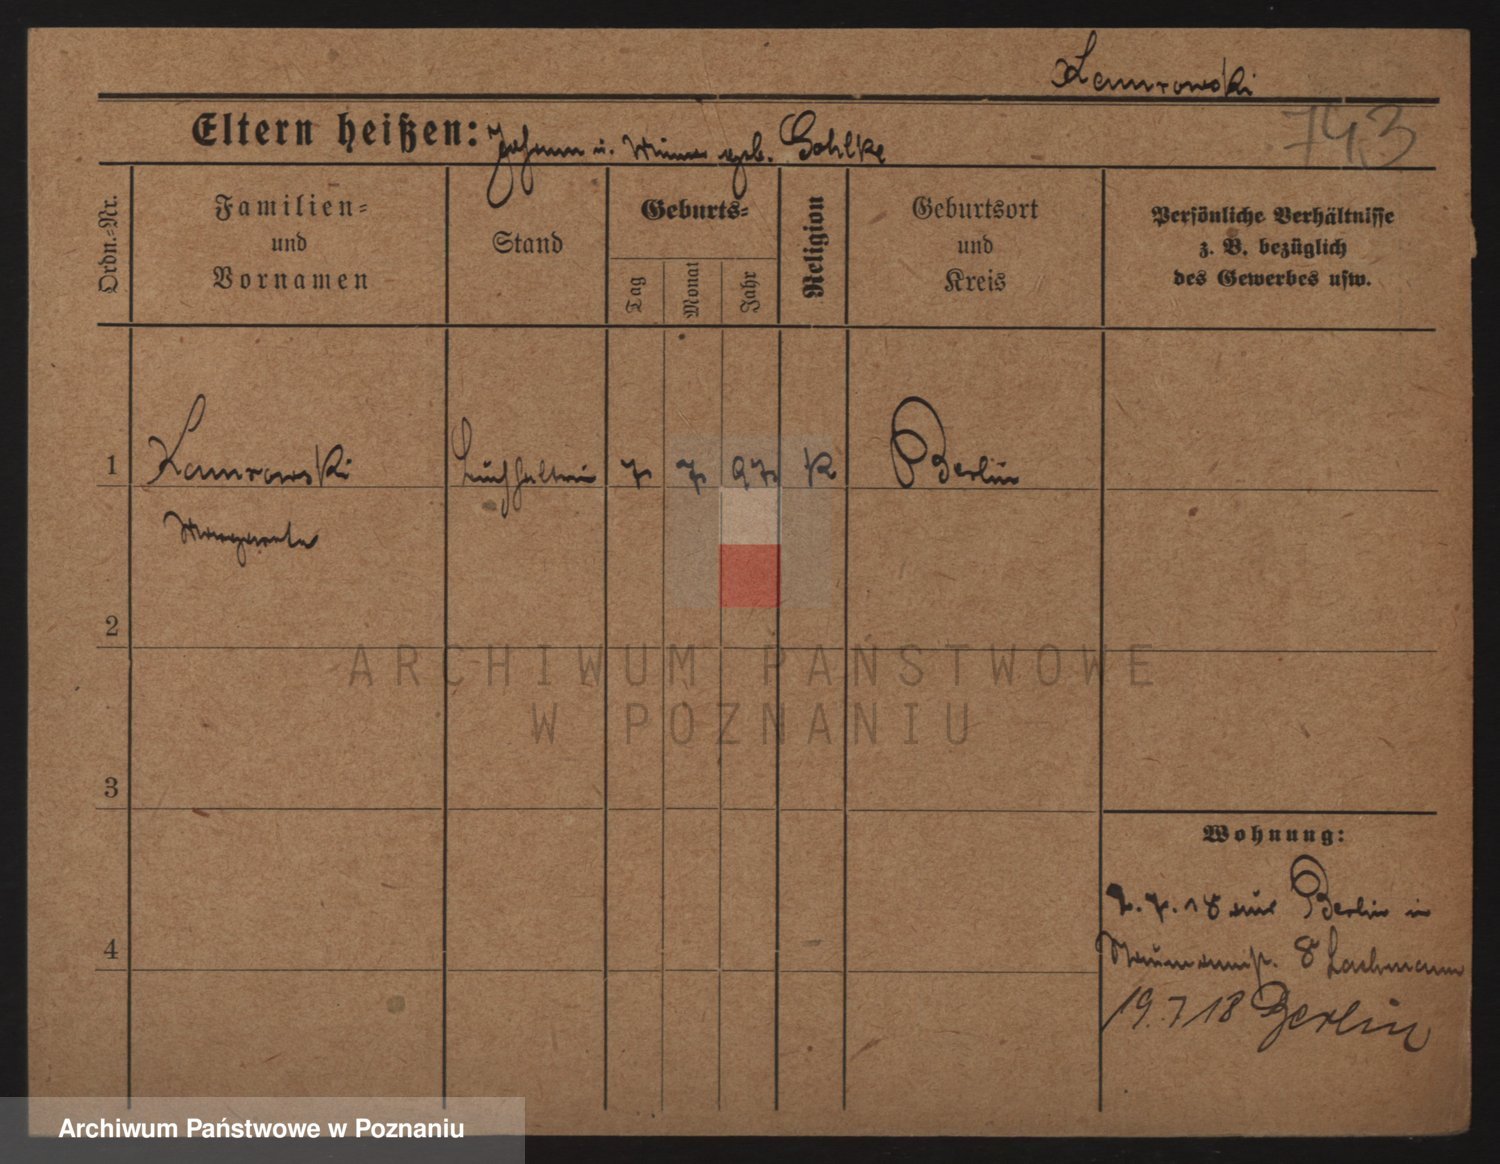 Lamrowski
Eltern heißen: Johann u. Minna geb. Gohlke
743
Ordn.-Nr.
Familien-
und
Vornamen
Stand
Geburts-
Tag
Monat
Jahr
Religion
Geburtsort
und
Kreis
Persönliche Verhältnisse
z. B. bezüglich
des Gewerbes usw.
1
Lamrowski
Buchhalterin
7
7
97
K
Berlin
Margarete
2
ARCHIWUM PAŃSTWOWE
W POZNANIU
3
Wohnung:
2. 7. 18 aus Berlin in
8 Lachmann
4
19. 7 18 Berlin
Archiwum Państwowe w Poznaniu